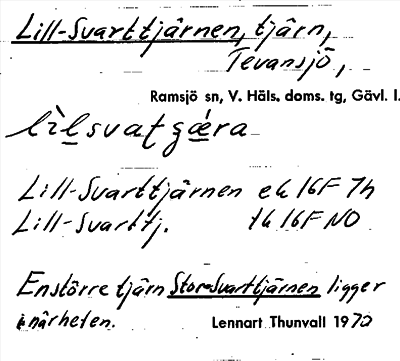 Lill-Svarttjärnen, tjärn,
Tevansjö,
Ramsjö sn, V. Häls. doms. tg, Gävl. l.
lìlsvatgǽra
Lill-Svarttjärnen ek 16F 7h
Lill-Svarttj. tk 16F NO
En större tjärn Stor-Svarttjärnen ligger
i närheten. Lennart Thunvall 1970